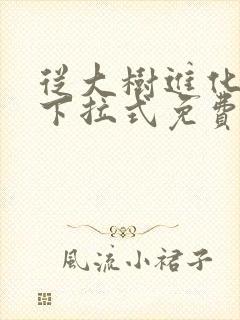 從大樹進化
下拉式免費
風流小裙子